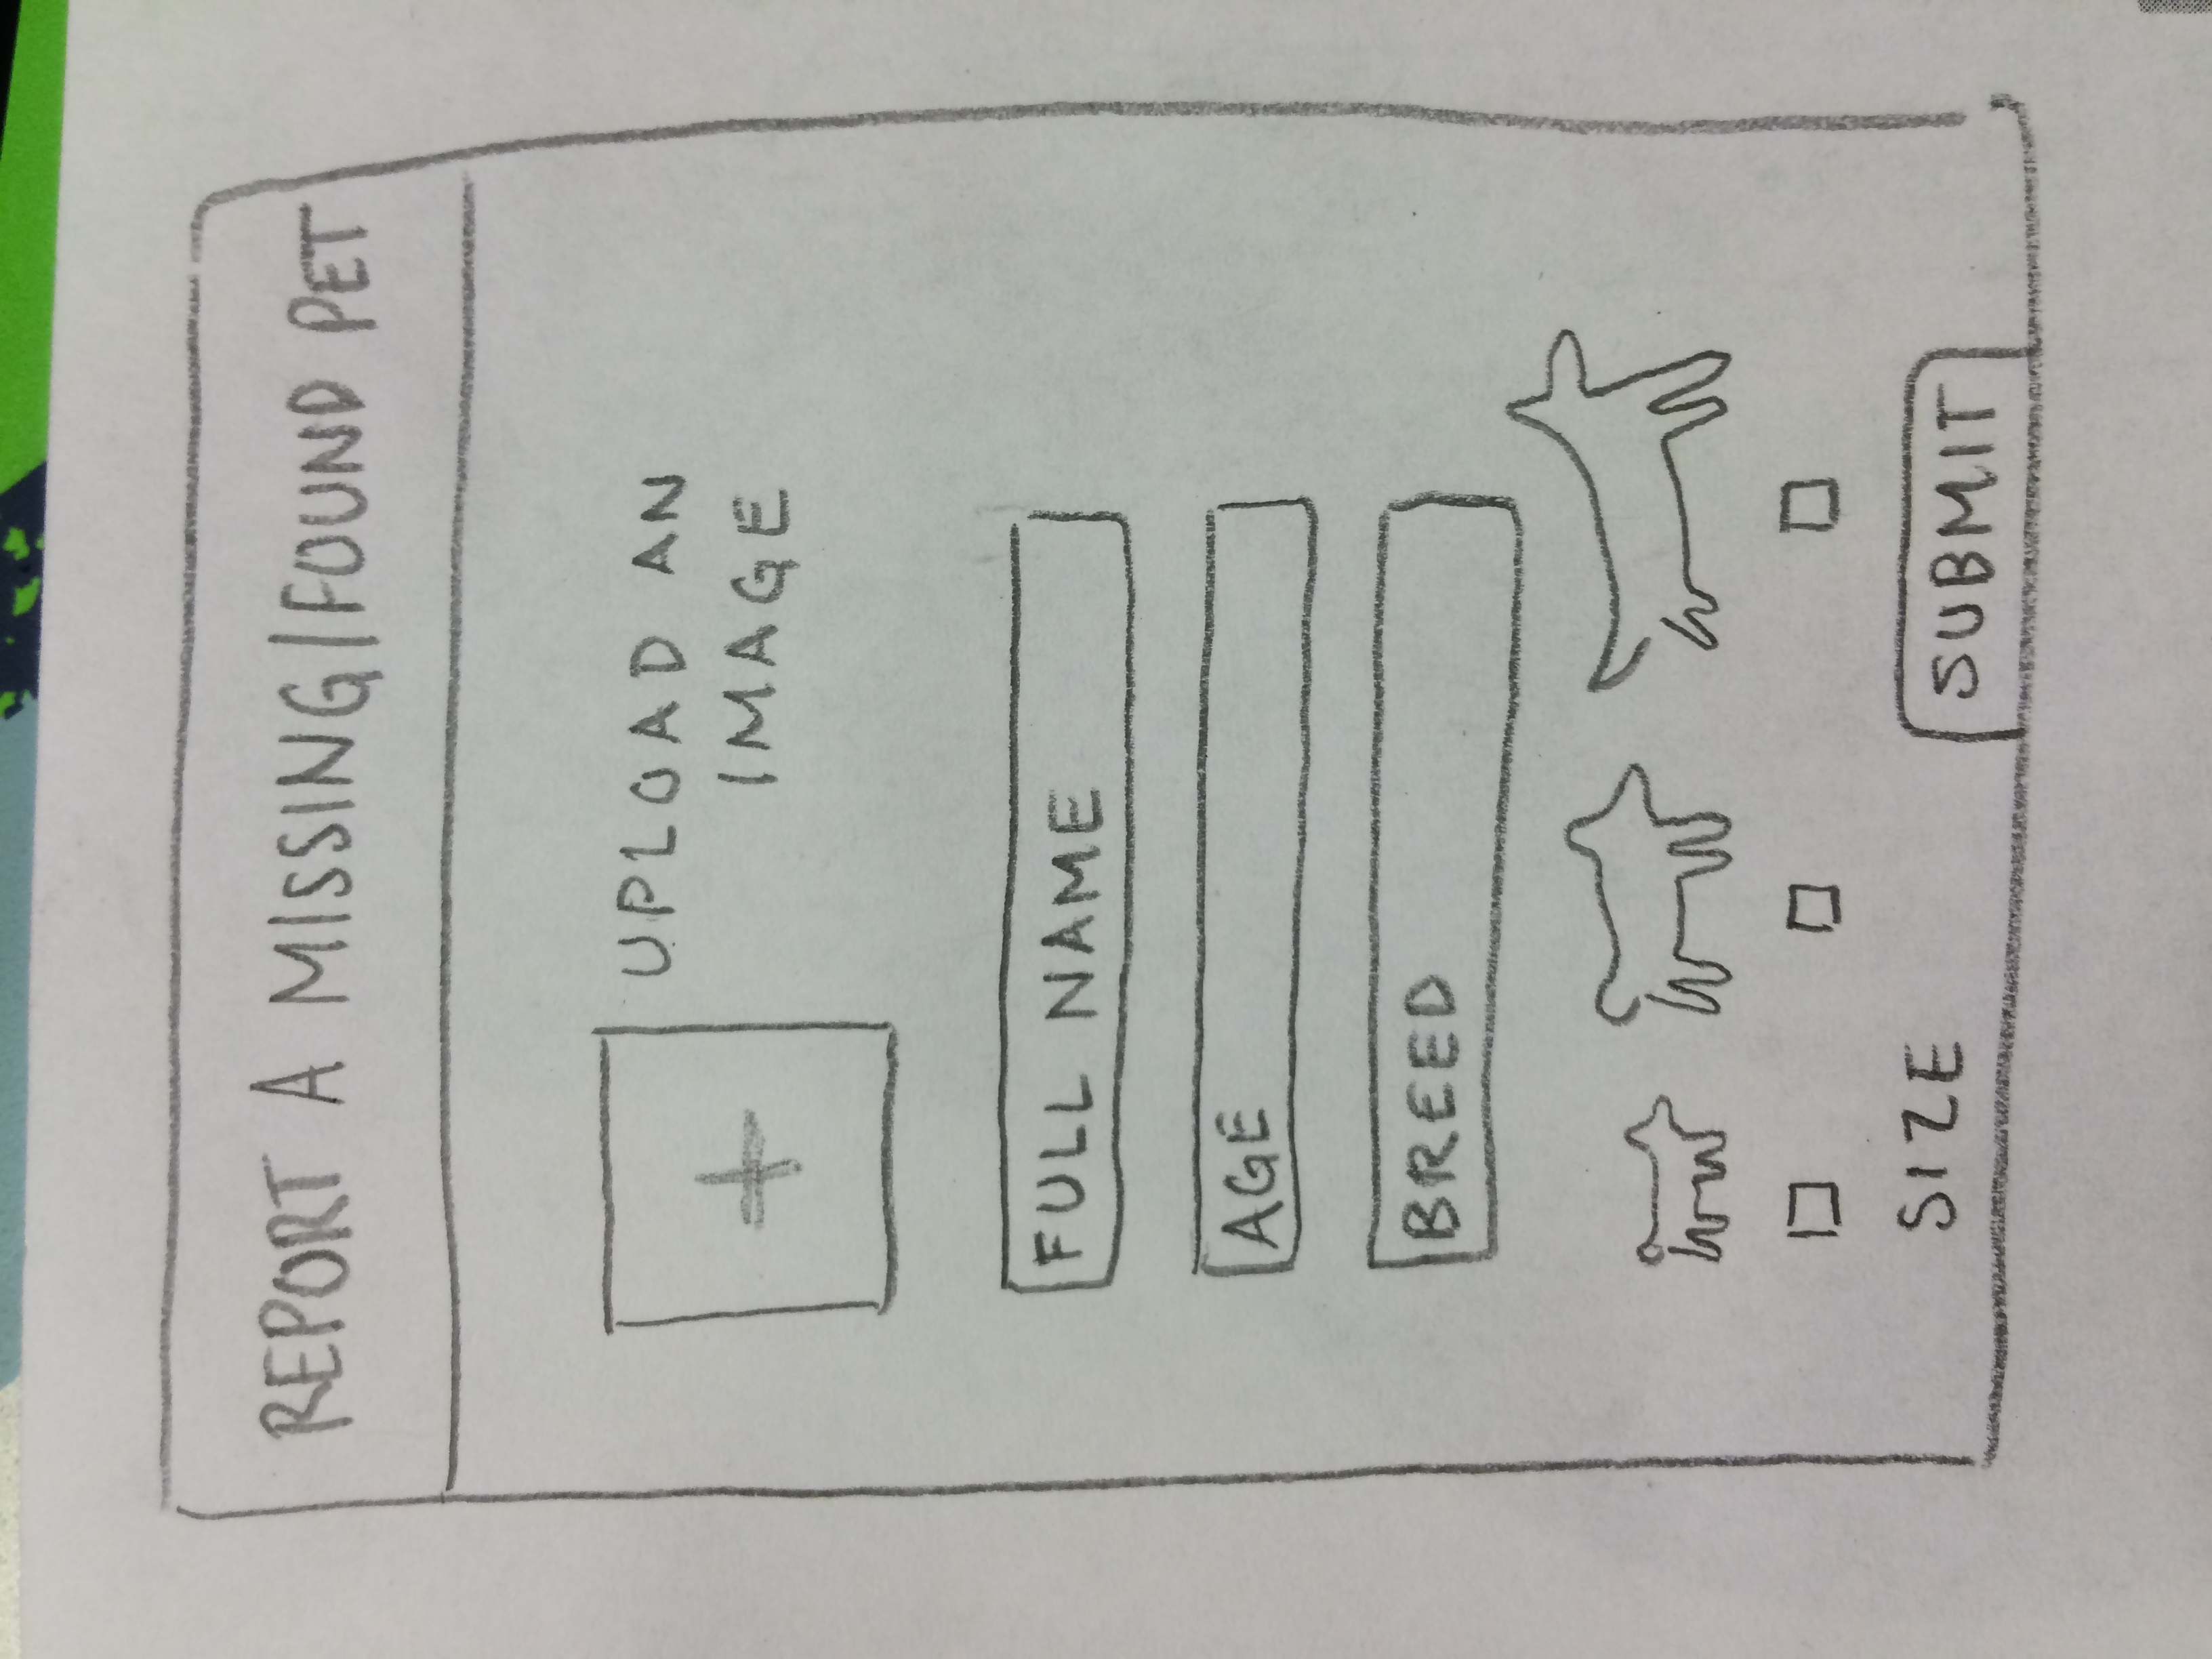 REPORT A MISSING/FOUND PET
UPLOAD AN
IMAGE
FULL NAME
AGE
BREED
SIZE
SUBMIT